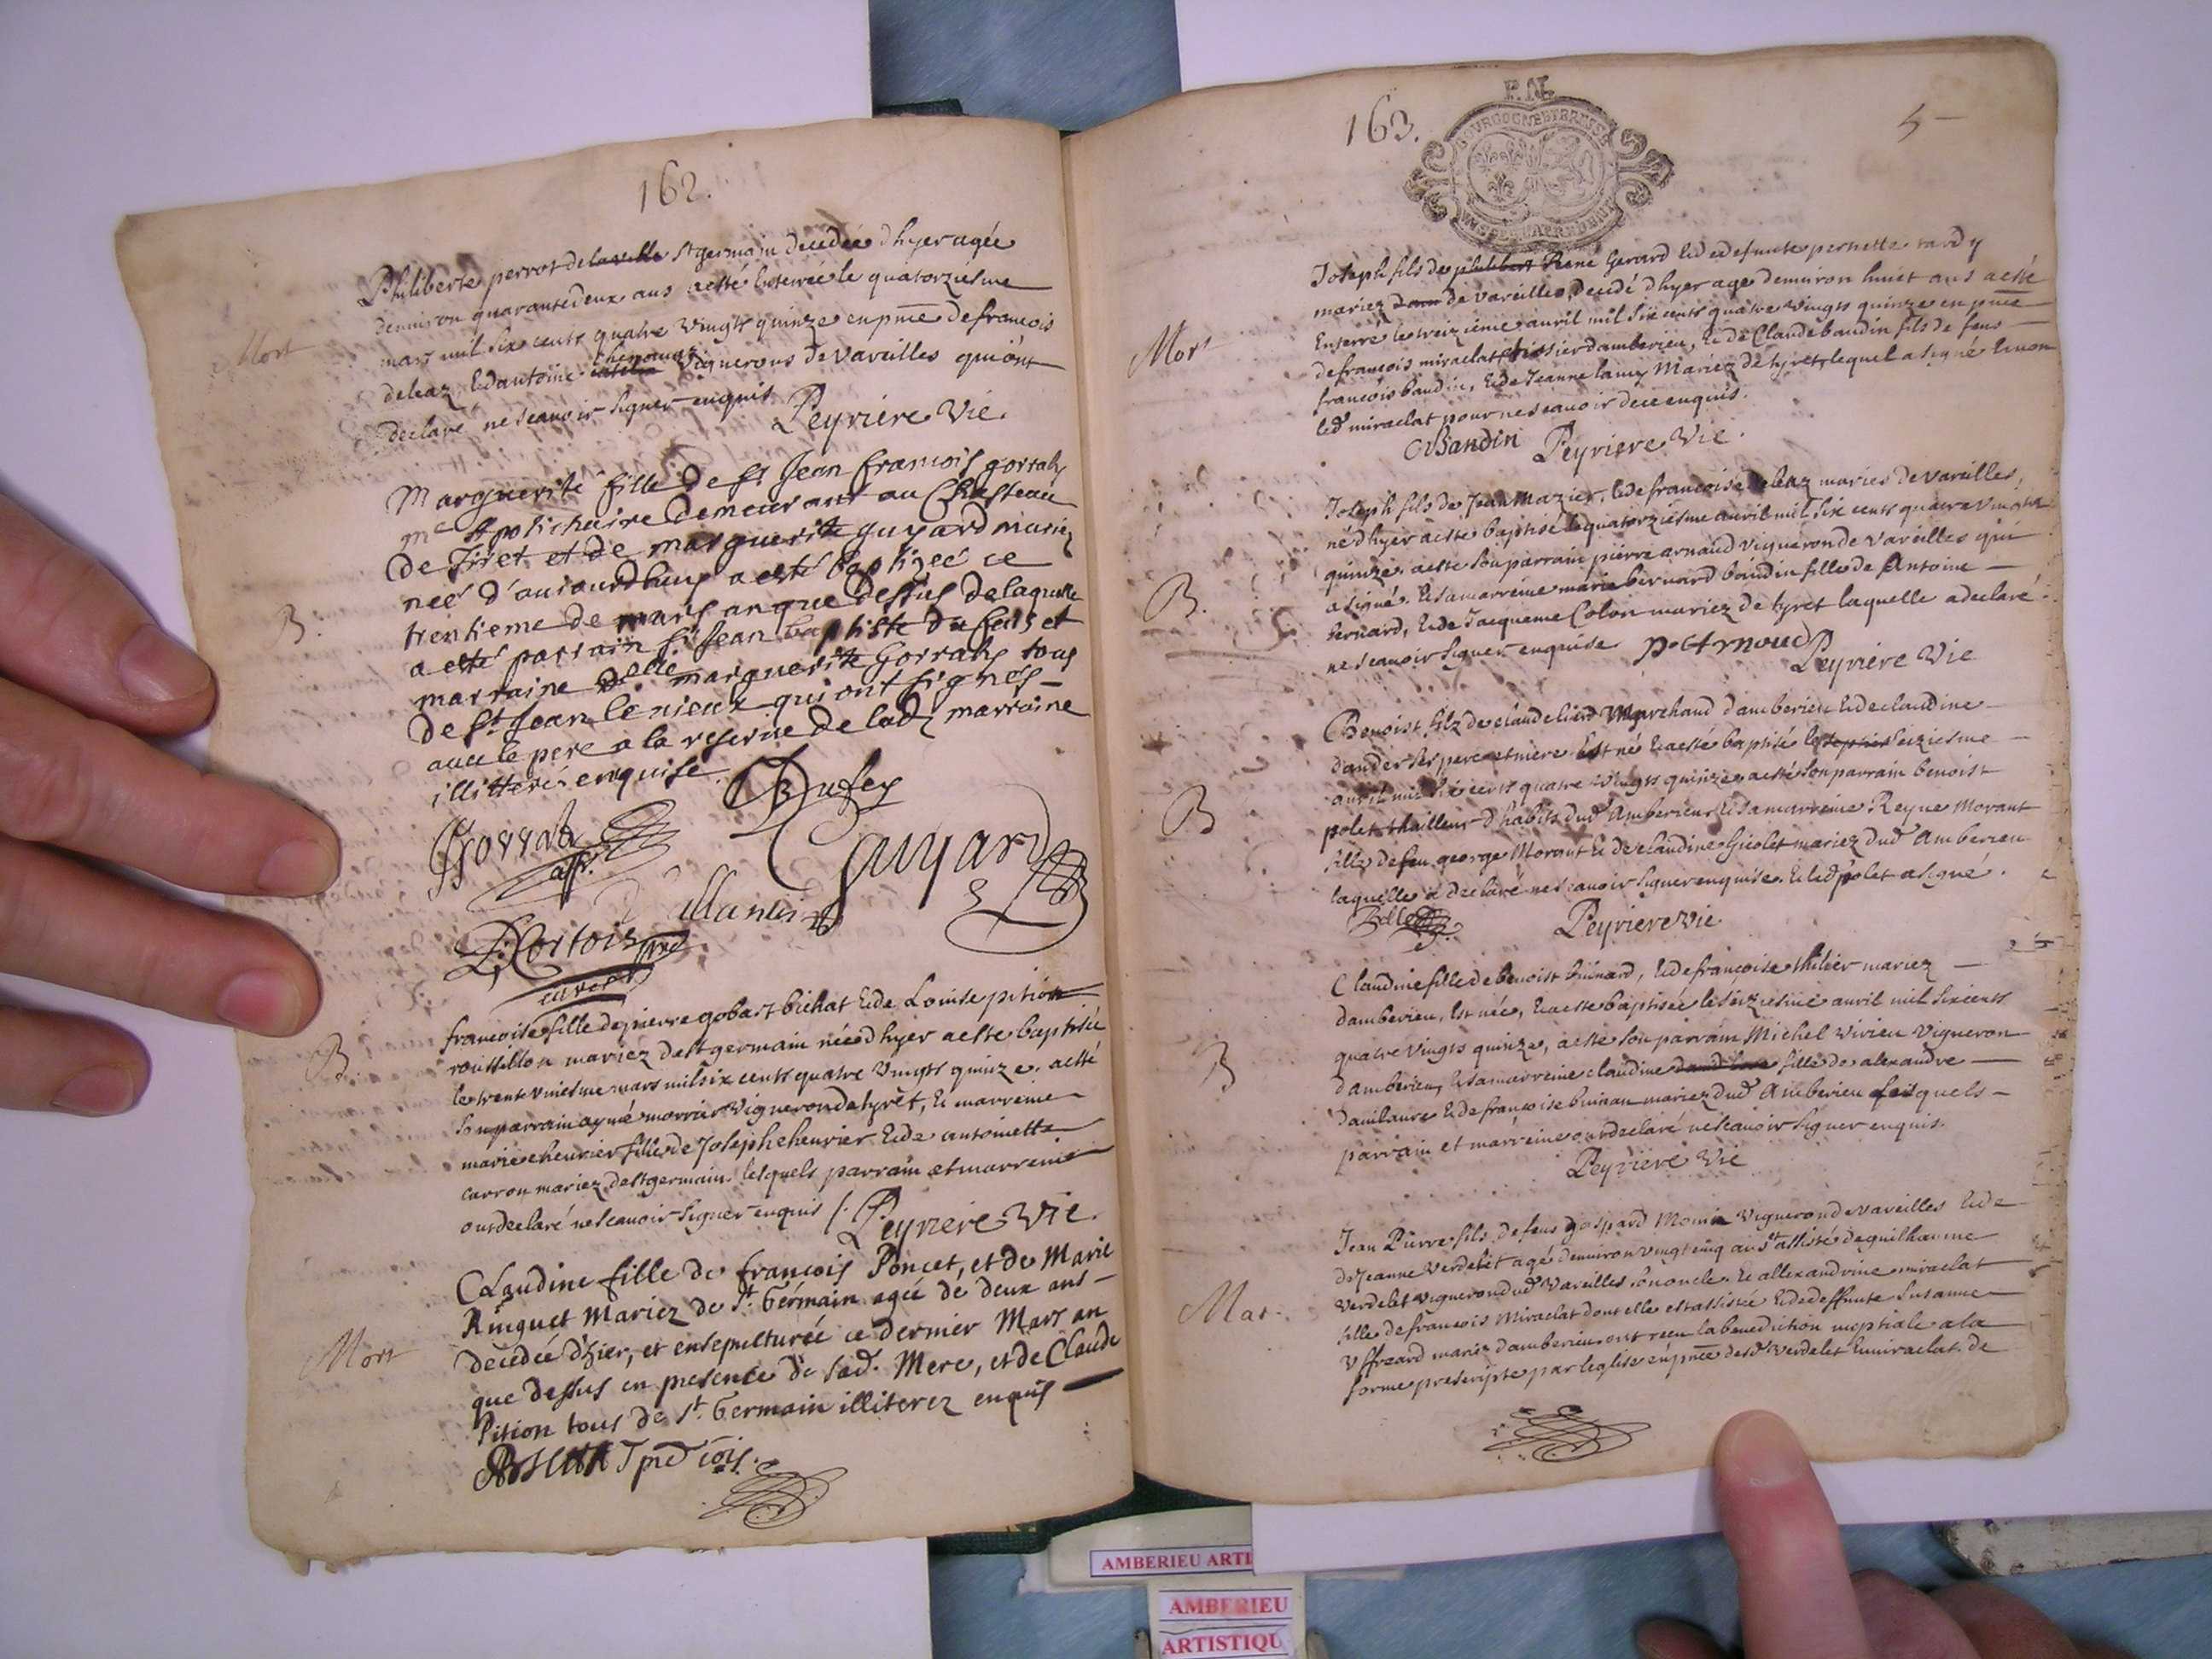 162.
Mort
Philiberte perrot de la ville St germain decedée dhyer agée
denuiron quarante deux ans a esté Enterrée le quatorziesme
mars mil six cents quatre vingts quinze en pnce de francois
deleaz, & dantoine chenauaz vignerons de vareilles qui ont
declaré ne scauoir signer enquis
Peyriere Vic.
B.
Marguerite fille de sr Jean francois gorraty
me Apotichaire demeurant au Chasteau
de Tiret et de marguerite guyard mariez
neé d'auiourdhuy a esté baptizeé ce
trentieme de mars an que dessus de laquelle
a esté parrain sr Jean baptiste Dufeis et
marraine Delle marguerite Gorraty tous
de St Jean le nieux qui ont signés
auec le pere a la reserue de lad marraine
illitteré enquise.
Dufey
Guyard
B.
francoise fille de pierre gobart bichat & de Louise pition
roussillon mariez de st germain née dhyer a este baptisée
le trente vniesme mars mil six cents quatre vingts quinze. a esté
son parrain aymé morrier vigneron de tyret, & marreine
marie cheurier fille de Joseph cheurier & de antoinette
carron mariez de st germain. lesquels parrain et marreine
ont declaré ne scauoir signer enquis /.
Peyriere Vic.
Mort
Claudine fille de francois Poncet, et de Marie
Ringuet Mariez de St. Germain agée de deux ans
decedée d'hier, et ensepulturée ce dernier Mars an
que dessus en presence de sad. Mere, et de Claude
Pition tous de St. Germain illiterez enquis
163.
F.N.
BOURGOGNE ET BRESSE
5
Mort
Joseph fils de philibert René Gerard & de defunte pernette tardy
mariez de vareilles, decedé dhyer age denuiron huict ans a esté
Enterré le treizieme auril mil six cents quatre vingts quinze en pnce
de francois miraclat, tixier damberieu, & de Claude baudin fils de feus
francois baudin, & de Jeanne lamy mariez de tyret, lequel a signé & non
led miraclat pour ne scauoir de ce enquis.
CBaudin Peyriere Vic.
B.
Joseph fils de Jean Mazier, & de francoise deleaz maries de vareilles,
né dhyer a este baptisé le quatorziesme auril mil six cents quatre vingts
quinze. a este son parrain pierre arnaud vigneron de vareilles qui
a signé. & sa marreine marie bernard baudin fille de Antoine
bernard, & de Jacqueme Colon mariez de tyret laquelle a declaré
ne scauoir signer enquise p. Arnoud
Peyriere Vic
B
Benoist filz de claude liard Marchand damberieu & de claudine
dander ses pere et mere Est né & a esté baptisé le septies seiziesme
auril mil six cents quatre vingts quinze. a esté son parrain benoist
polet thailleur dhabits dud Amberieu & sa marreine Reyne Morant
fille de feu george Morant & de claudine Gicolet mariez dud Amberieu
laquelle a declaré ne scauoir signer enquise. & led polet a signé.
Peyriere Vic
B
Claudine fille de benoist buinard, & de francoise thilier mariez
damberieu, Est née, & a este baptisée le seiziesme auril mil six cents
quatre vingts quinze, a este son parrain Michel vivieu vigneron
damberieu, & sa marreine claudine fille de alexandre
danilaure & de francoise buinan mariez dud Amberieu lesquels
parrain et marreine ont declaré ne scauoir signer enquis.
Peyriere Vic
Mar.
Jean Pierre fils de feus gaspard Monin vigneron de vareilles & de
de Jeanne verdelet agé denuiron vingt cinq ans assisté de guilhaume
verdelet vigneron dud vareilles son oncle. & allexandrine miraclat
fille de francois Miraclat dont elle est assistée & de deffunte Susanne
Uffreard mariez damberieu, ont receu la benediction nuptiale a la
forme prescripte par leglise en pnce desd verdelet & miraclat. de
AMBERIEU ARTI
AMBERIEU
ARTISTIQU